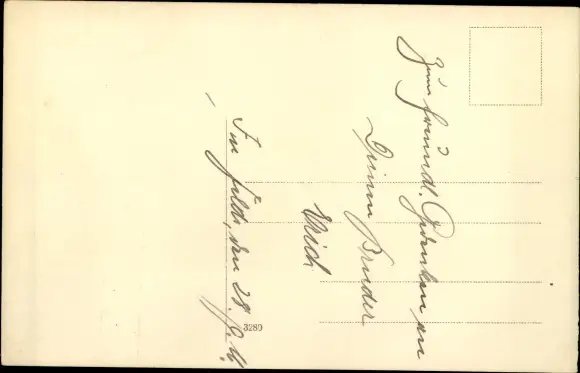 Zum freundl. Gedenken an
Deinen Bruder
Erich
Im Felde, den 28.
3289